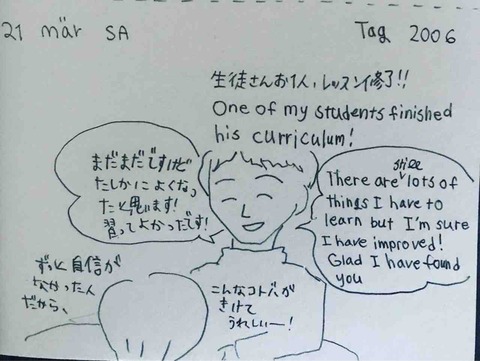 21 mär SA
Tag 2006
生徒さんお1人、レッスン修了!!
One of my students finished
his curriculum!
まだまだですけど
たしかによくなっ
たと思います!
習ってよかったです!
There are still lots of
things I have to
learn but I'm sure
I have improved!
Glad I have found
you
ずっと自信が
なかった人
だから、
こんなコトバが
きけて
うれしいー!